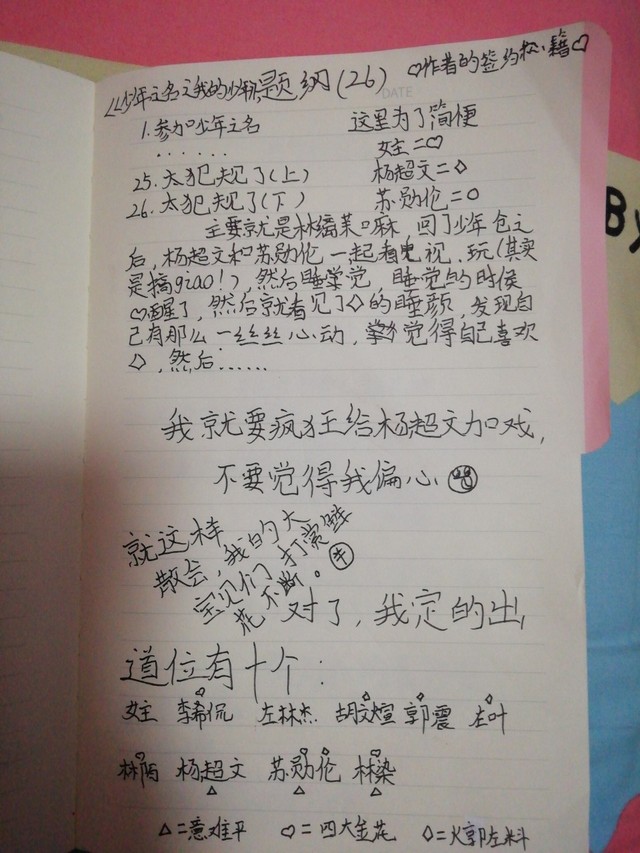 ♡作者的签约松小籍♡
《少年之名之我的少年》题纲(26)
DATE
1.参加少年之名
这里为了简便
......
女主=♡
25.太犯规了(上)
杨超文=◇
26.太犯规了(下)
苏勋伦=○
主要就是林编莱口麻 回了少年仓之
后,杨超文和苏勋伦一起看电视、玩(其实
是搞giao!),然后睡觉,睡觉的时候
♡醒了,然后就看见了◇的睡颜,发现自
己有那么一丝丝心动,觉得自己喜欢
◇,然后......
我就要疯狂给杨超文加戏,
不要觉得我偏心
就这样
散会,我的大
宝贝们,打赏鲜
花不断。
对了,我定的出
道位有十个:
女主 李希侃 左林杰 胡文煊 郭震 左叶
林陌 杨超文 苏勋伦 林染
△=意难平 ♡=四大金花 ◇=火郭左料
By